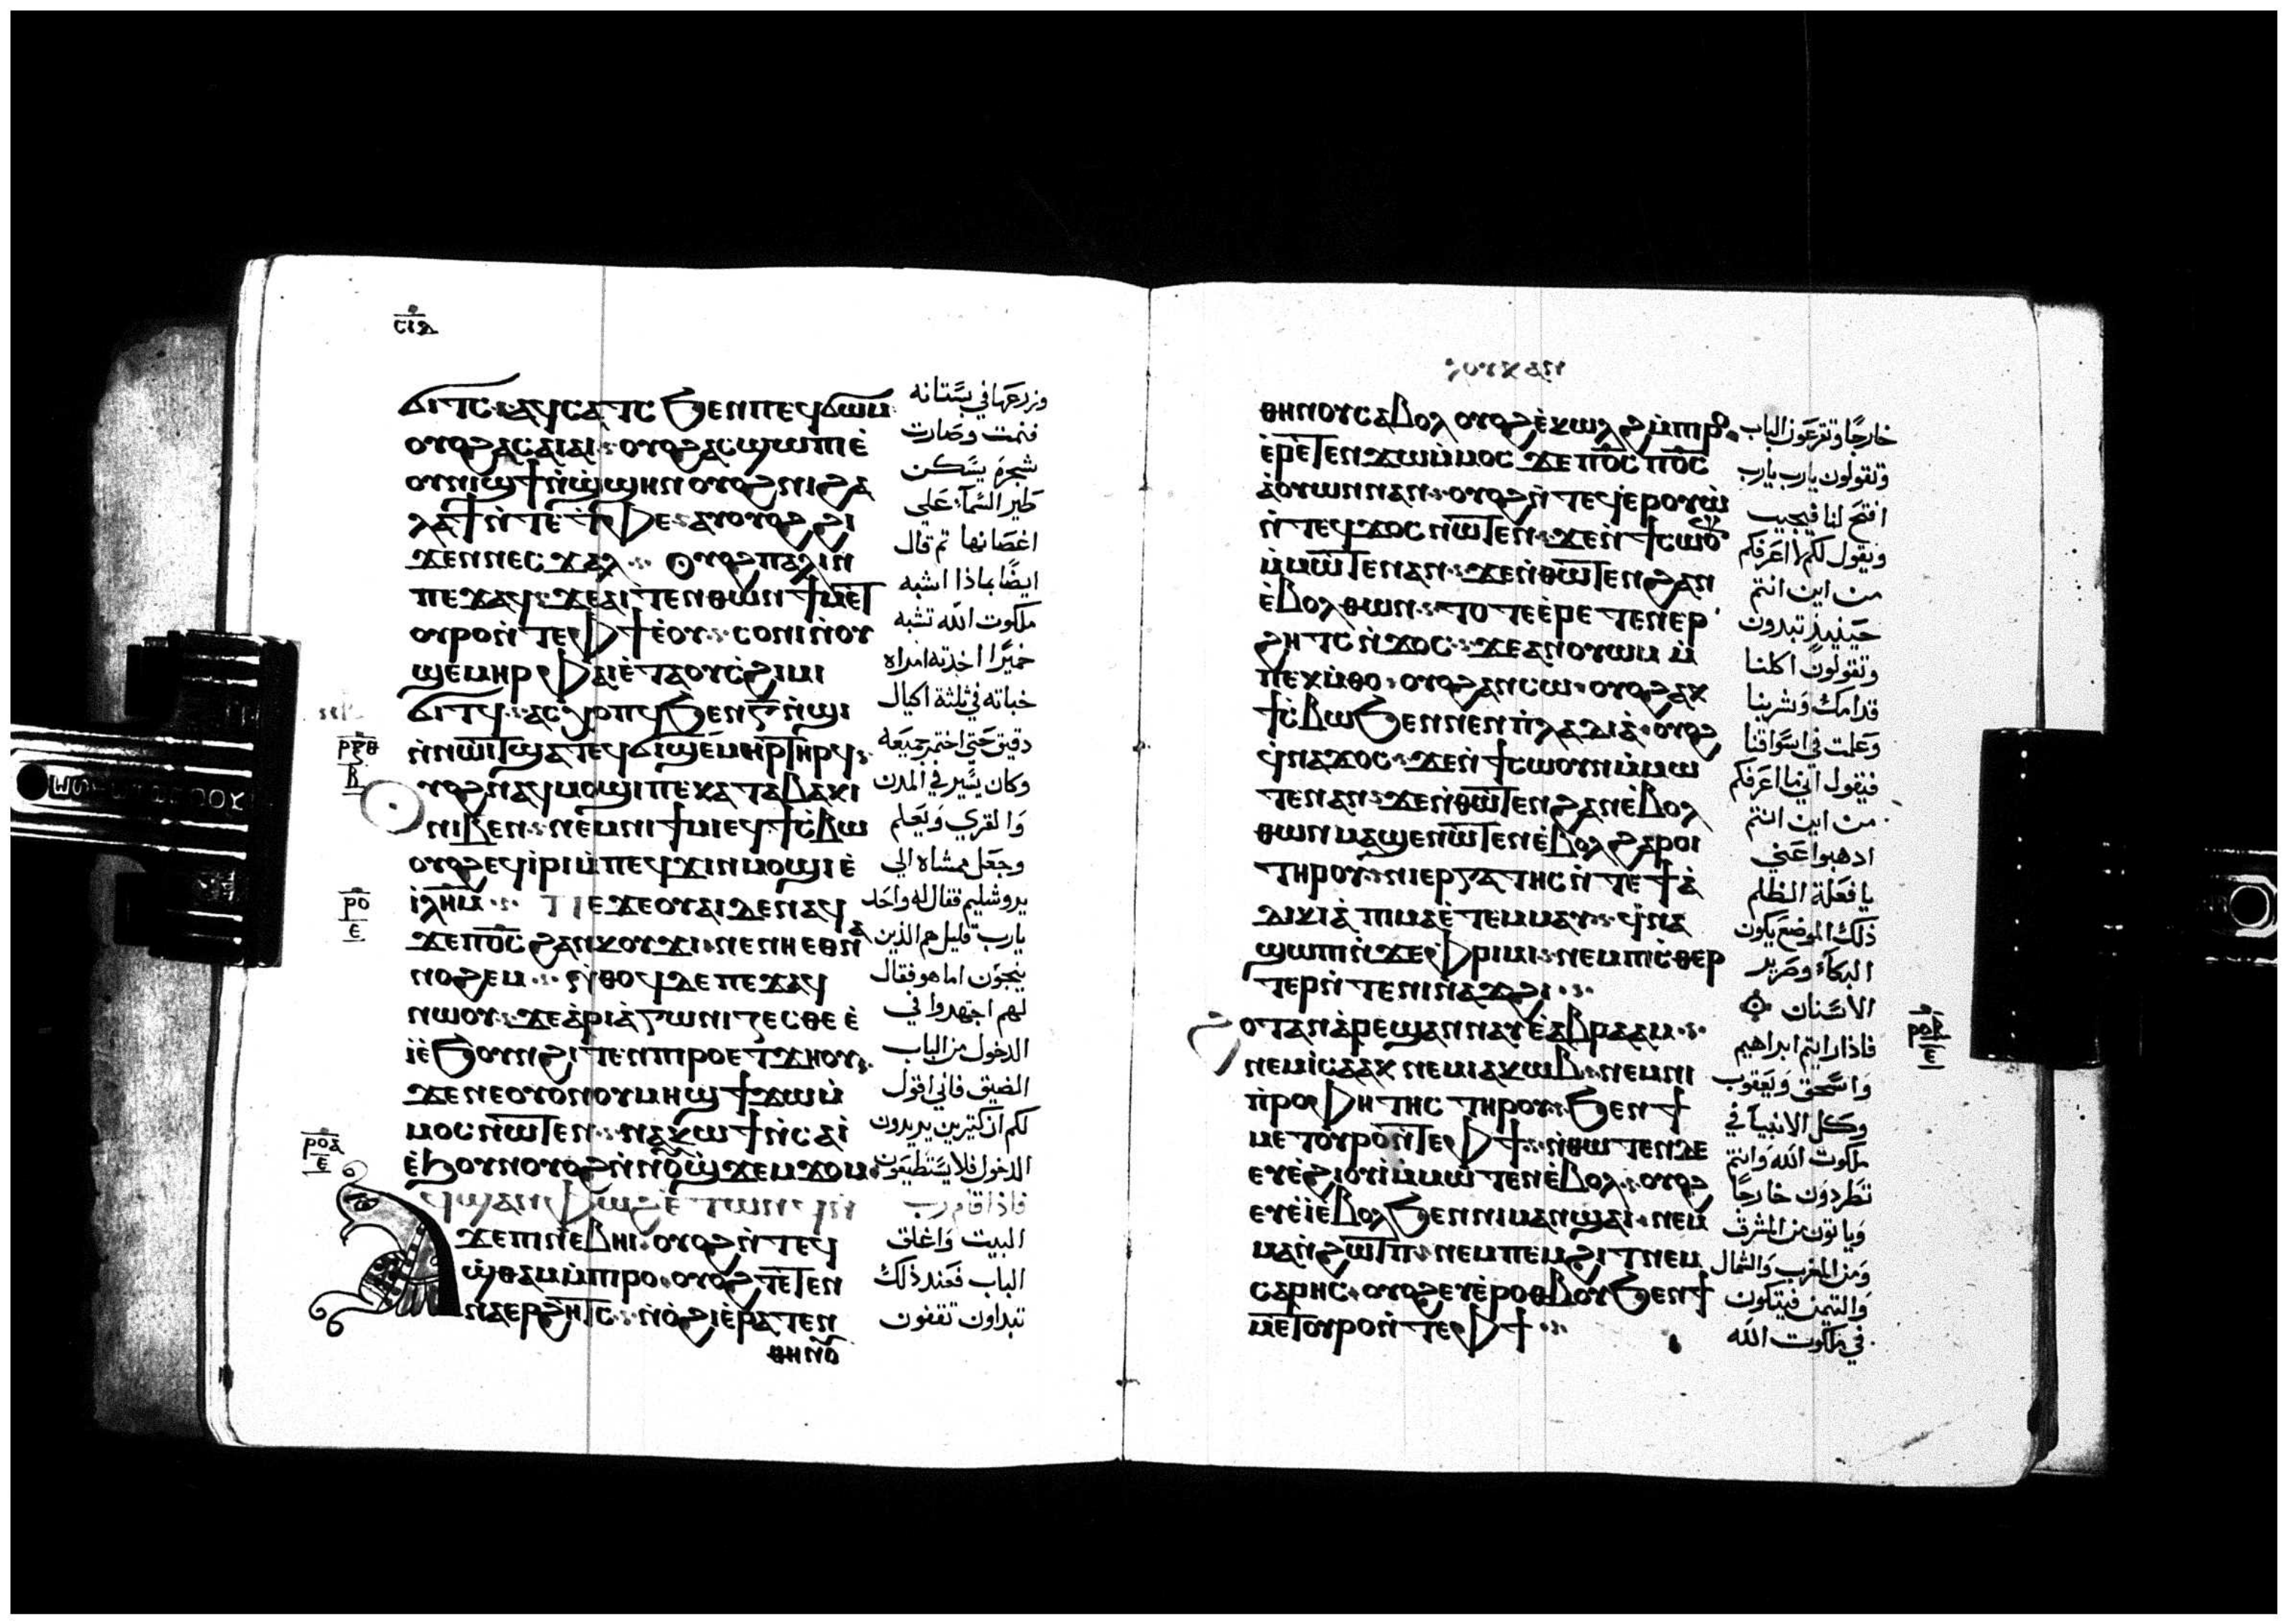 ⲥⲓⲇ
ϭⲓⲧⲥ ⲁϥⲥⲁⲧⲥ ϧⲉⲛⲡⲉϥϭⲱⲙ
ⲟⲩⲟϩⲁⲥⲁⲓⲁⲓ ⲟⲩⲟϩⲁⲥϣⲱⲡⲓⲉ̀
ⲟⲩⲛⲓϣϯⲛ̀ϣ̀ϣⲏⲛ ⲟⲩⲟϩⲛⲓϩⲁ
ⲗⲁϯⲛ̀ⲧⲉⲧ̀ⲫⲉ ⲁⲩⲟⲩⲟϩ ϩⲓ
ϫⲉⲛⲛⲉⲥϫⲁⲗ Ⲟⲩⲟϩⲡⲁⲗⲓⲛ
ⲡⲉϫⲁϥ ϫⲉⲁⲓⲧⲉⲛⲑⲱⲛϯⲙⲉⲧ
ⲟⲩⲣⲟⲛ̀ⲧⲉⲫϯⲉ̀ⲟⲩ ⲥⲟⲛⲓⲛ̀ⲟⲩ
ϣⲉⲙⲏⲣ ⲫⲁⲓⲉ̀ⲧⲁⲟⲩⲥ̀ϩⲓⲙⲓ
ϭⲓⲧϥ ⲁⲥⲭⲟⲡϥ ϧⲉⲛⲅ̅ⲛ̀ϣⲓ
ⲛ̀ⲛⲱⲓⲧϣⲁⲧⲉϥϭⲓϣⲉⲙⲏⲣⲧⲏⲣϥ
ⲟⲩⲟϩⲛⲁϥⲙⲟϣⲓⲡⲉⲕⲁⲧⲁⲃⲁⲕⲓ
ⲛⲓⲃⲉⲛ ⲛⲉⲙⲛⲓϯⲙⲓ ⲉϥϯⲥ̀ⲃⲱ
ⲟⲩⲟϩⲉϥⲓ̀ⲣⲓⲙ̀ⲡⲉϥϫⲓⲛⲙⲟϣⲓⲉ̀
ⲓ̀ⲗⲏⲙ ⲡⲉϫⲉⲟⲩⲁⲓⲇⲉⲛⲁϥ
ϫⲉⲡⲟ̅ⲥ̅ ϩⲁⲛⲕⲟⲩϫⲓ ⲛⲉⲛⲏⲉⲑⲛⲁ
ⲛⲟϩⲉⲙ ⲛ̀ⲑⲟϥⲇⲉⲡⲉϫⲁϥ
ⲛⲱⲟⲩ ϫⲉⲁ̀ⲣⲓⲁ̀ⲅⲱⲛⲓⲍⲉⲥⲑⲉⲉ̀
ⲓ̀ⲉ̀ϧⲟⲩⲛϩⲓⲧⲉⲛⲡⲓⲣⲟⲉⲧϫⲏⲟⲩ
ϫⲉⲛⲉⲟⲩⲟⲛⲟⲩⲙⲏϣϯϫⲱⲙ̀
ⲙⲟⲥⲛ̀ⲱⲧⲉⲛ ⲛⲁⲕⲱϯⲛ̀ⲥⲁⲓ
ⲉ̀ϧⲟⲩⲛⲟⲩⲟϩⲛ̀ⲛⲟⲩϣ̀ϫⲉⲙϫⲟⲙ
ϥϣⲁⲛⲫⲱϩ ⲉ̀ⲧⲱⲛϥⲛ̀
ϫⲉⲡⲓⲛⲉⲃⲏⲓ ⲟⲩⲟϩⲛ̀ⲧⲉϥ
ϣ̀ⲑⲁⲙⲙ̀ⲡⲓⲣⲟ ⲟⲩⲟϩⲧⲉⲧⲉⲛ
ⲛⲁⲉⲣϩⲏⲧⲥ ⲛ̀ⲟ̀ϩⲓⲉ̀ⲣⲁⲧⲉⲛ
ⲑⲏⲛⲟⲩ
وزرعها في بستانه
فنمت وصارت
شجرة يسكن
طير السماء على
اغصانها ثم قال
ايضا بماذا اشبه
ملكوت الله تشبه
خميرا اخذته امراه
خباته في ثلثة اكيال
دقيق حتى اختمر جميعه
وكان يسير في المدن
والقرى ويعلم
وجعل ممشاه الى
يروشليم فقال له واحد
يارب قليل هم الذين
ينجون اما هو فقال
لهم اجتهدوا في
الدخول من الباب
الضيق فاني اقول
لكم ان كثيرين يريدون
الدخول فلا يستطيعون
فاذا قام رب
البيت واغلق
الباب فعند ذلك
تبداون تقفون
ⲣⲝⲑ
ⲃ
ⲣⲟ
ⲉ
ⲣⲟⲁ
ⲉ
ⲑⲏⲛⲟⲩⲥⲁⲃⲟⲗ ⲟⲩⲟϩⲉ̀ⲕⲱⲗϩⲙ̀ⲡⲓⲣⲟ
ⲉ̀ⲣⲉⲧⲉⲛϫⲱⲙ̀ⲙⲟⲥ ϫⲉⲡⲟ̅ⲥ̅ ⲡⲟ̅ⲥ̅
ⲁ̀ⲟⲩⲱⲛⲛⲁⲛ ⲟⲩⲟϩⲛ̀ⲧⲉϥⲉⲣⲟⲩⲱ̀
ⲛ̀ⲧⲉϥϫⲟⲥⲛⲱⲧⲉⲛ ϫⲉⲛ̀ϯⲥⲱⲟⲩⲛ
ⲙ̀ⲙⲱⲧⲉⲛⲁⲛ ϫⲉⲛ̀ⲑⲱⲧⲉⲛϩⲁⲛ
ⲉ̀ⲃⲟⲗⲑⲱⲛ ⲧⲟⲧⲉⲉ̀ⲣⲉⲧⲉⲛⲉⲣ
ϩⲏⲧⲥⲛ̀ϫⲟⲥ ϫⲉⲁⲛⲟⲩⲱⲙ ⲙ̀
ⲡⲉⲕⲙ̀ⲑⲟ ⲟⲩⲟϩⲁⲛⲥⲱ ⲟⲩⲟϩⲁⲕ
ϯⲥ̀ⲃⲱ ϧⲉⲛⲛⲉⲛⲡ̀ⲗⲁⲇⲓⲁ̀ ⲟⲩⲟϩ
ϥ̀ⲛⲁϫⲟⲥ ϫⲉⲛ̀ϯⲥⲱⲟⲩⲛⲙ̀ⲙⲱ
ⲧⲉⲛⲁⲛ ϫⲉⲛ̀ⲑⲱⲧⲉⲛϩⲁⲛⲉ̀ⲃⲟⲗ
ⲑⲱⲛ ⲙⲁϣⲉⲛⲱⲧⲉⲛⲉ̀ⲃⲟⲗ ϩⲁⲣⲟⲓ
ⲧⲏⲣⲟⲩ ⲛⲓⲉⲣⲅⲁⲧⲏⲥⲛ̀ⲧⲉϯⲁ̀
ⲇⲓⲕⲓⲁ̀ ⲡⲓⲙⲁⲉ̀ⲧⲉⲙⲙⲁⲩ ϥ̀ⲛⲁ
ϣⲱⲡⲓⲛ̀ϫⲉⲫⲣⲓⲙⲓ ⲛⲉⲙⲡⲓⲥ̀ⲑⲉⲣ
ⲧⲉⲣⲛ̀ⲧⲉⲛⲓⲛⲁϫϩⲓ
ϩⲟⲧⲁⲛⲁ̀ⲣⲉϣⲁⲛⲛⲁⲩⲉ̀ⲁⲃⲣⲁⲁⲙ
ⲛⲉⲙⲓⲥⲁⲁⲕ ⲛⲉⲙⲓⲁⲕⲱⲃ ⲛⲉⲙⲛⲓ
ⲡ̀ⲣⲟⲫⲏⲧⲏⲥ ⲧⲏⲣⲟⲩ ϧⲉⲛϯ
ⲙⲉⲧⲟⲩⲣⲟⲛ̀ⲧⲉⲫϯ ⲛ̀ⲑⲱⲧⲉⲛⲇⲉ
ⲉⲩⲉ̀ϩⲓⲟⲩⲓ̀ⲙ̀ⲙⲱⲧⲉⲛⲉ̀ⲃⲟⲗ ⲟⲩⲟϩ
ⲉⲩⲉ̀ⲓ̀ⲉ̀ⲃⲟⲗ ϧⲉⲛⲛⲓⲙⲁⲛϣⲁⲓ ⲛⲉⲙ
ⲙⲁⲛ̀ϩⲱⲧⲡ ⲛⲉⲙⲡⲉⲙϩⲓⲧ ⲛⲉⲙ
ⲥⲁⲣⲏⲥ ⲟⲩⲟϩⲉⲩⲉ̀ⲣⲟⲑⲃⲟⲩ ϧⲉⲛϯ
ⲙⲉⲧⲟⲩⲣⲟⲛ̀ⲧⲉⲫϯ
خارجا وتقرعون الباب
وتقولون يارب يارب
افتح لنا فيجيب
ويقول لكم لا اعرفكم
من اين انتم
حينيذ تبدون
وتقولون اكلنا
قدامك وشربنا
وعلمت في اسواقنا
فيقول اني ما اعرفكم
من اين انتم
اذهبوا عني
يا فعلة الظلم
ذلك الموضع يكون
البكاء وصرير
الاسنان
فاذا رايتم ابراهيم
واسحق ويعقوب
وكل الانبيا في
ملكوت الله وانتم
تطردون خارجا
وياتون من المشرق
ومن المغرب والشمال
والتيمن فيتكون
في ملكوت الله